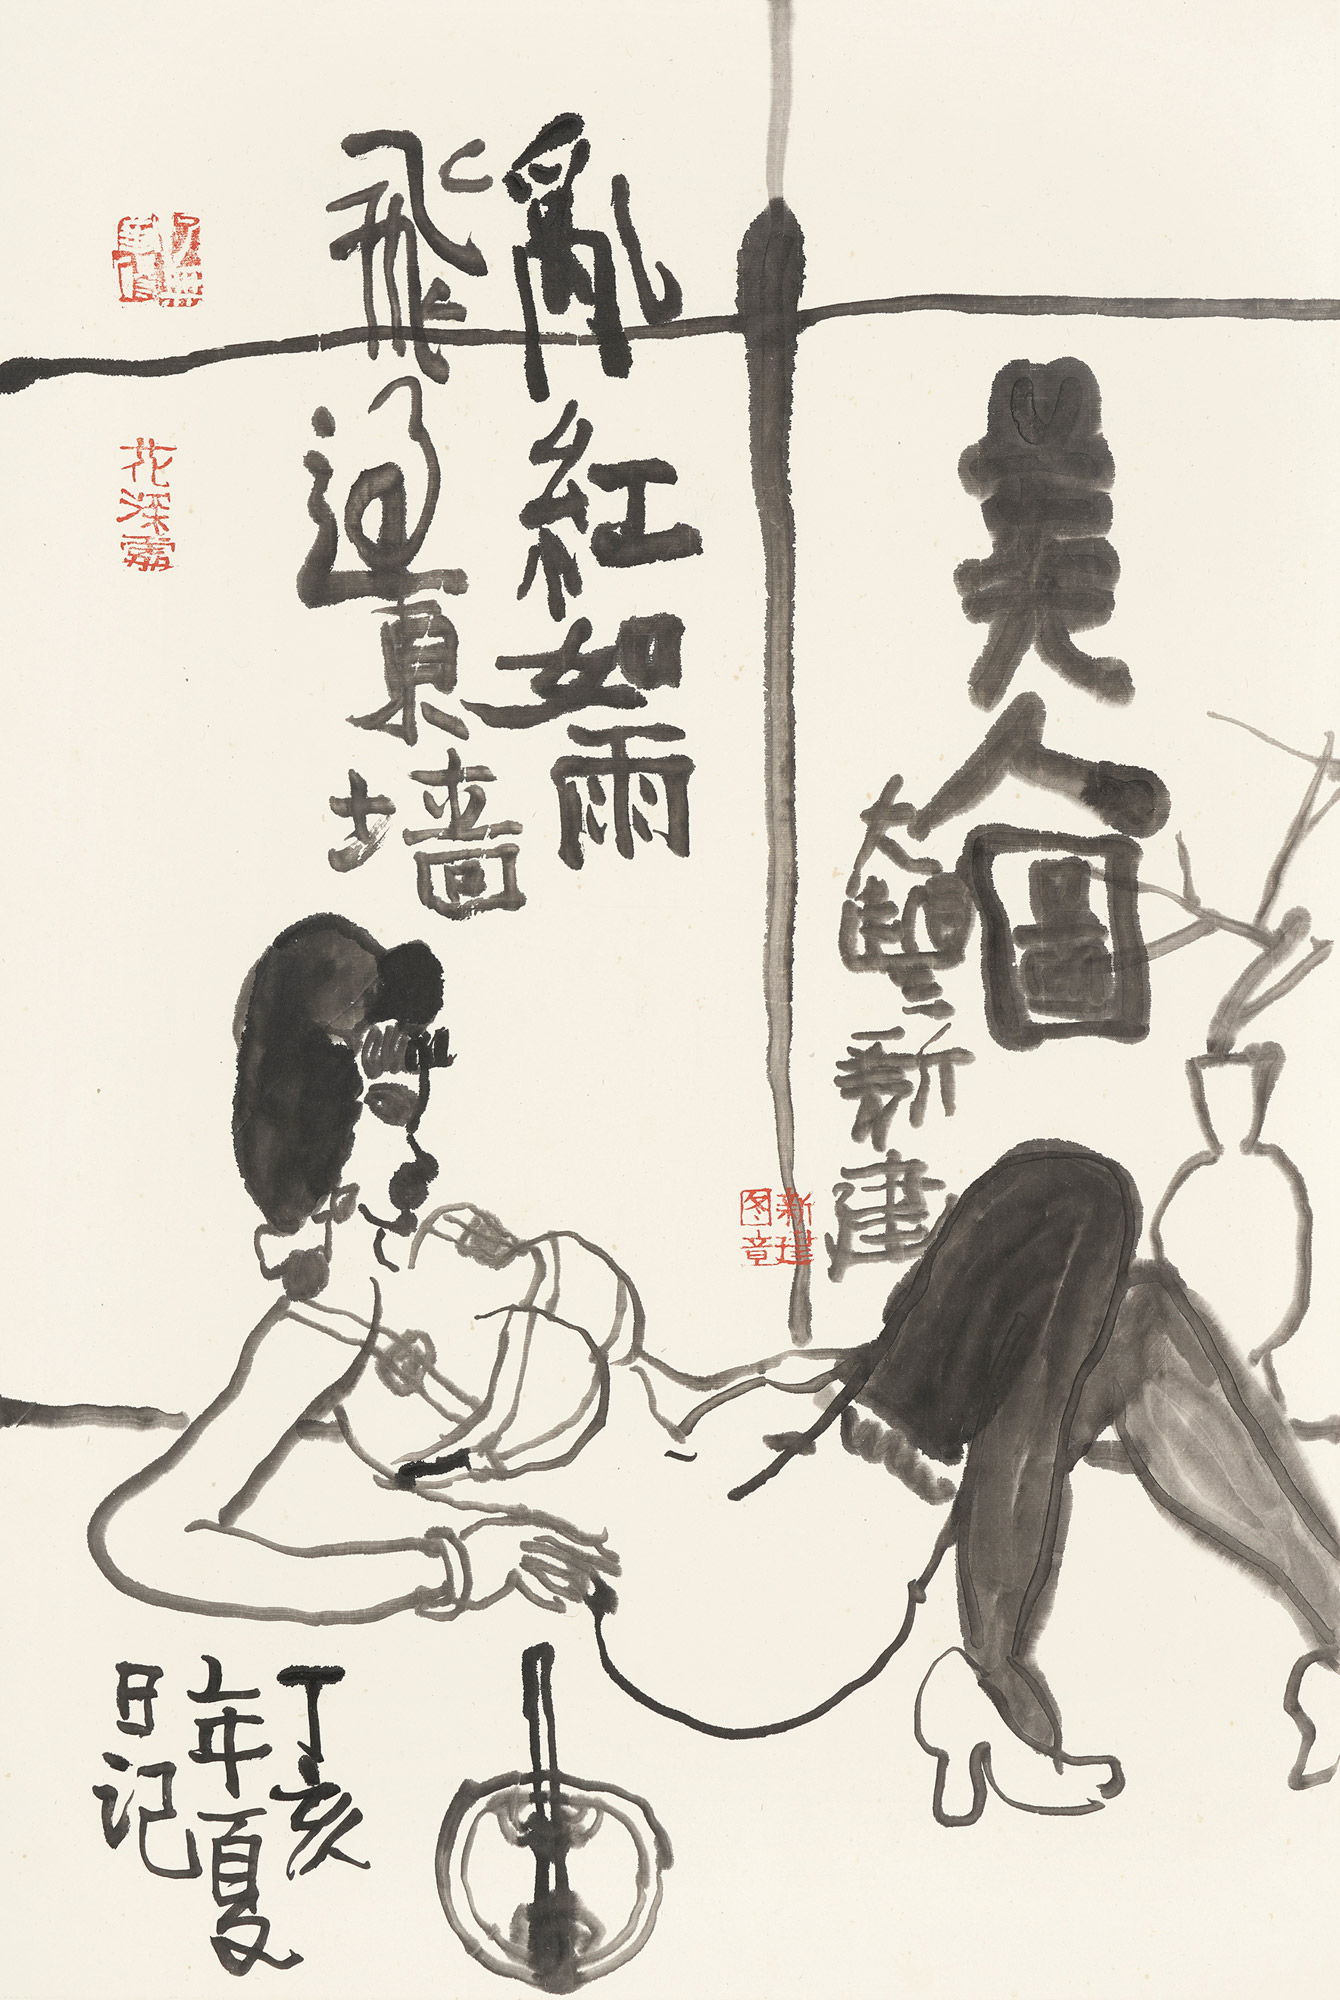 美人圖
大豐新建
亂紅如雨
飛過東墙
丁亥
年夏
日记
新建
图章
花深處